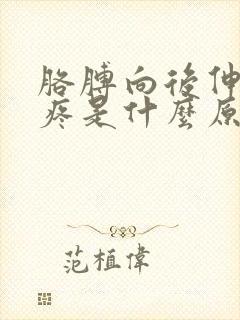 胳膊向後伸
疼是什麼原
范植偉